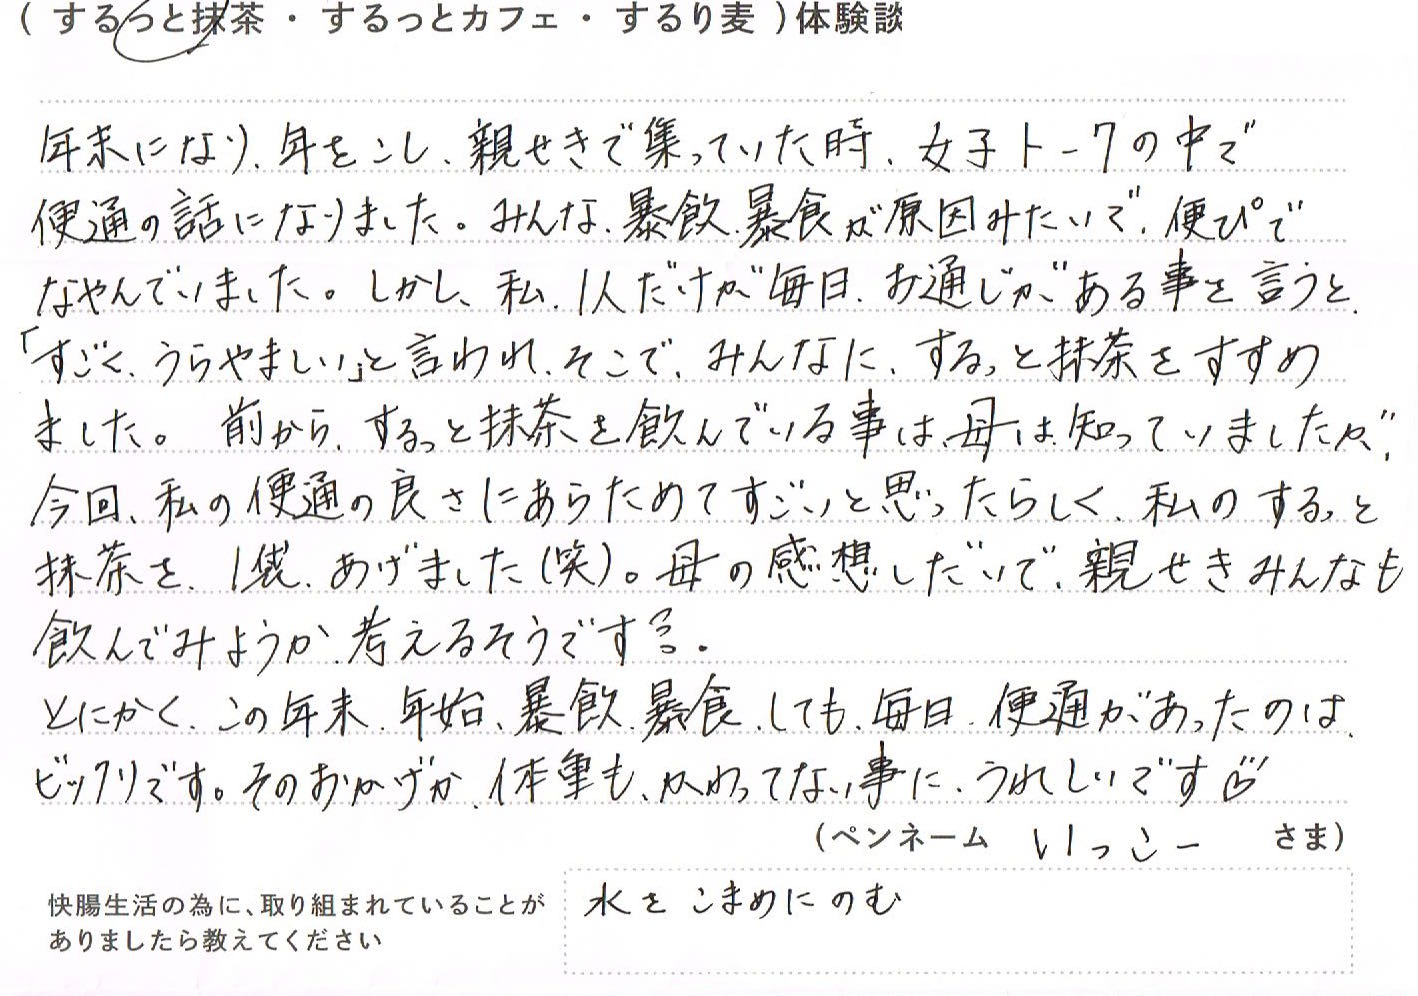 ( するっと抹茶 ・ するっとカフェ ・ するり麦 ) 体験談
年末になり、年をこし、親せきで集っていた時、女子トークの中で
便通の話になりました。みんな、暴飲、暴食が原因みたいで、便ぴで
なやんでいました。しかし、私、1人だけが毎日、お通じがある事を言うと、
「すごく、うらやましい」と言われ、そこで、みんなに、するっと抹茶をすすめ
ました。 前から、するっと抹茶を飲んでいる事は、母は、知っていましたが、
今回、私の便通の良さにあらためてすごいと思ったらしく、私のするっと
抹茶を、1袋、あげました(笑)。母の感想しだいで、親せきみんなも
飲んでみようか、考えるそうです。
とにかく、この年末、年始、暴飲、暴食、しても、毎日、便通があったのは、
ビックリです。そのおかげか、体重も、かわってない事に、うれしいです♡
(ペンネーム いっこー さま)
快腸生活の為に、取り組まれていることが
ありましたら教えてください
水をこまめにのむ